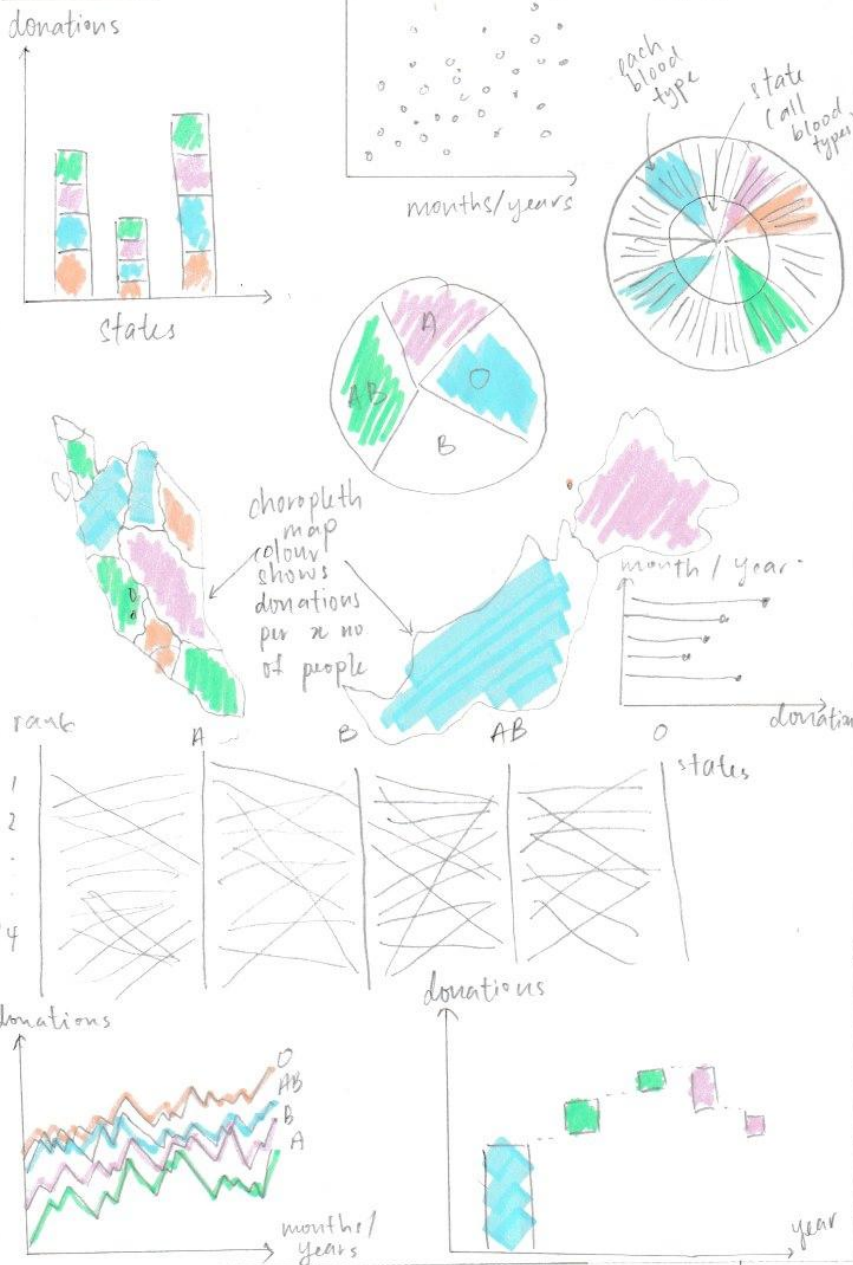 donations
states
months/years
each
blood
type
state
(all
blood
types)
A
AB
O
B
choropleth
map
colour
shows
donations
per x no
of people
month / year
donation
rank
A
B
AB
O
states
1
2
.
.
14
donations
O
AB
B
A
months/
years
donations
year